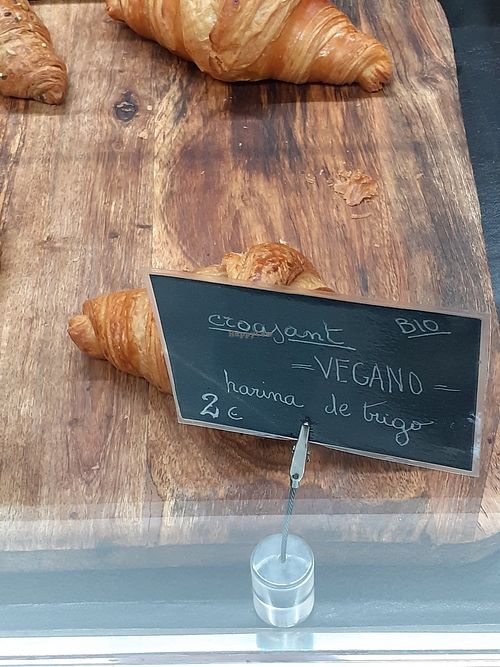 croasant BIO
HappyCow
= VEGANO =
harina de trigo
2 €